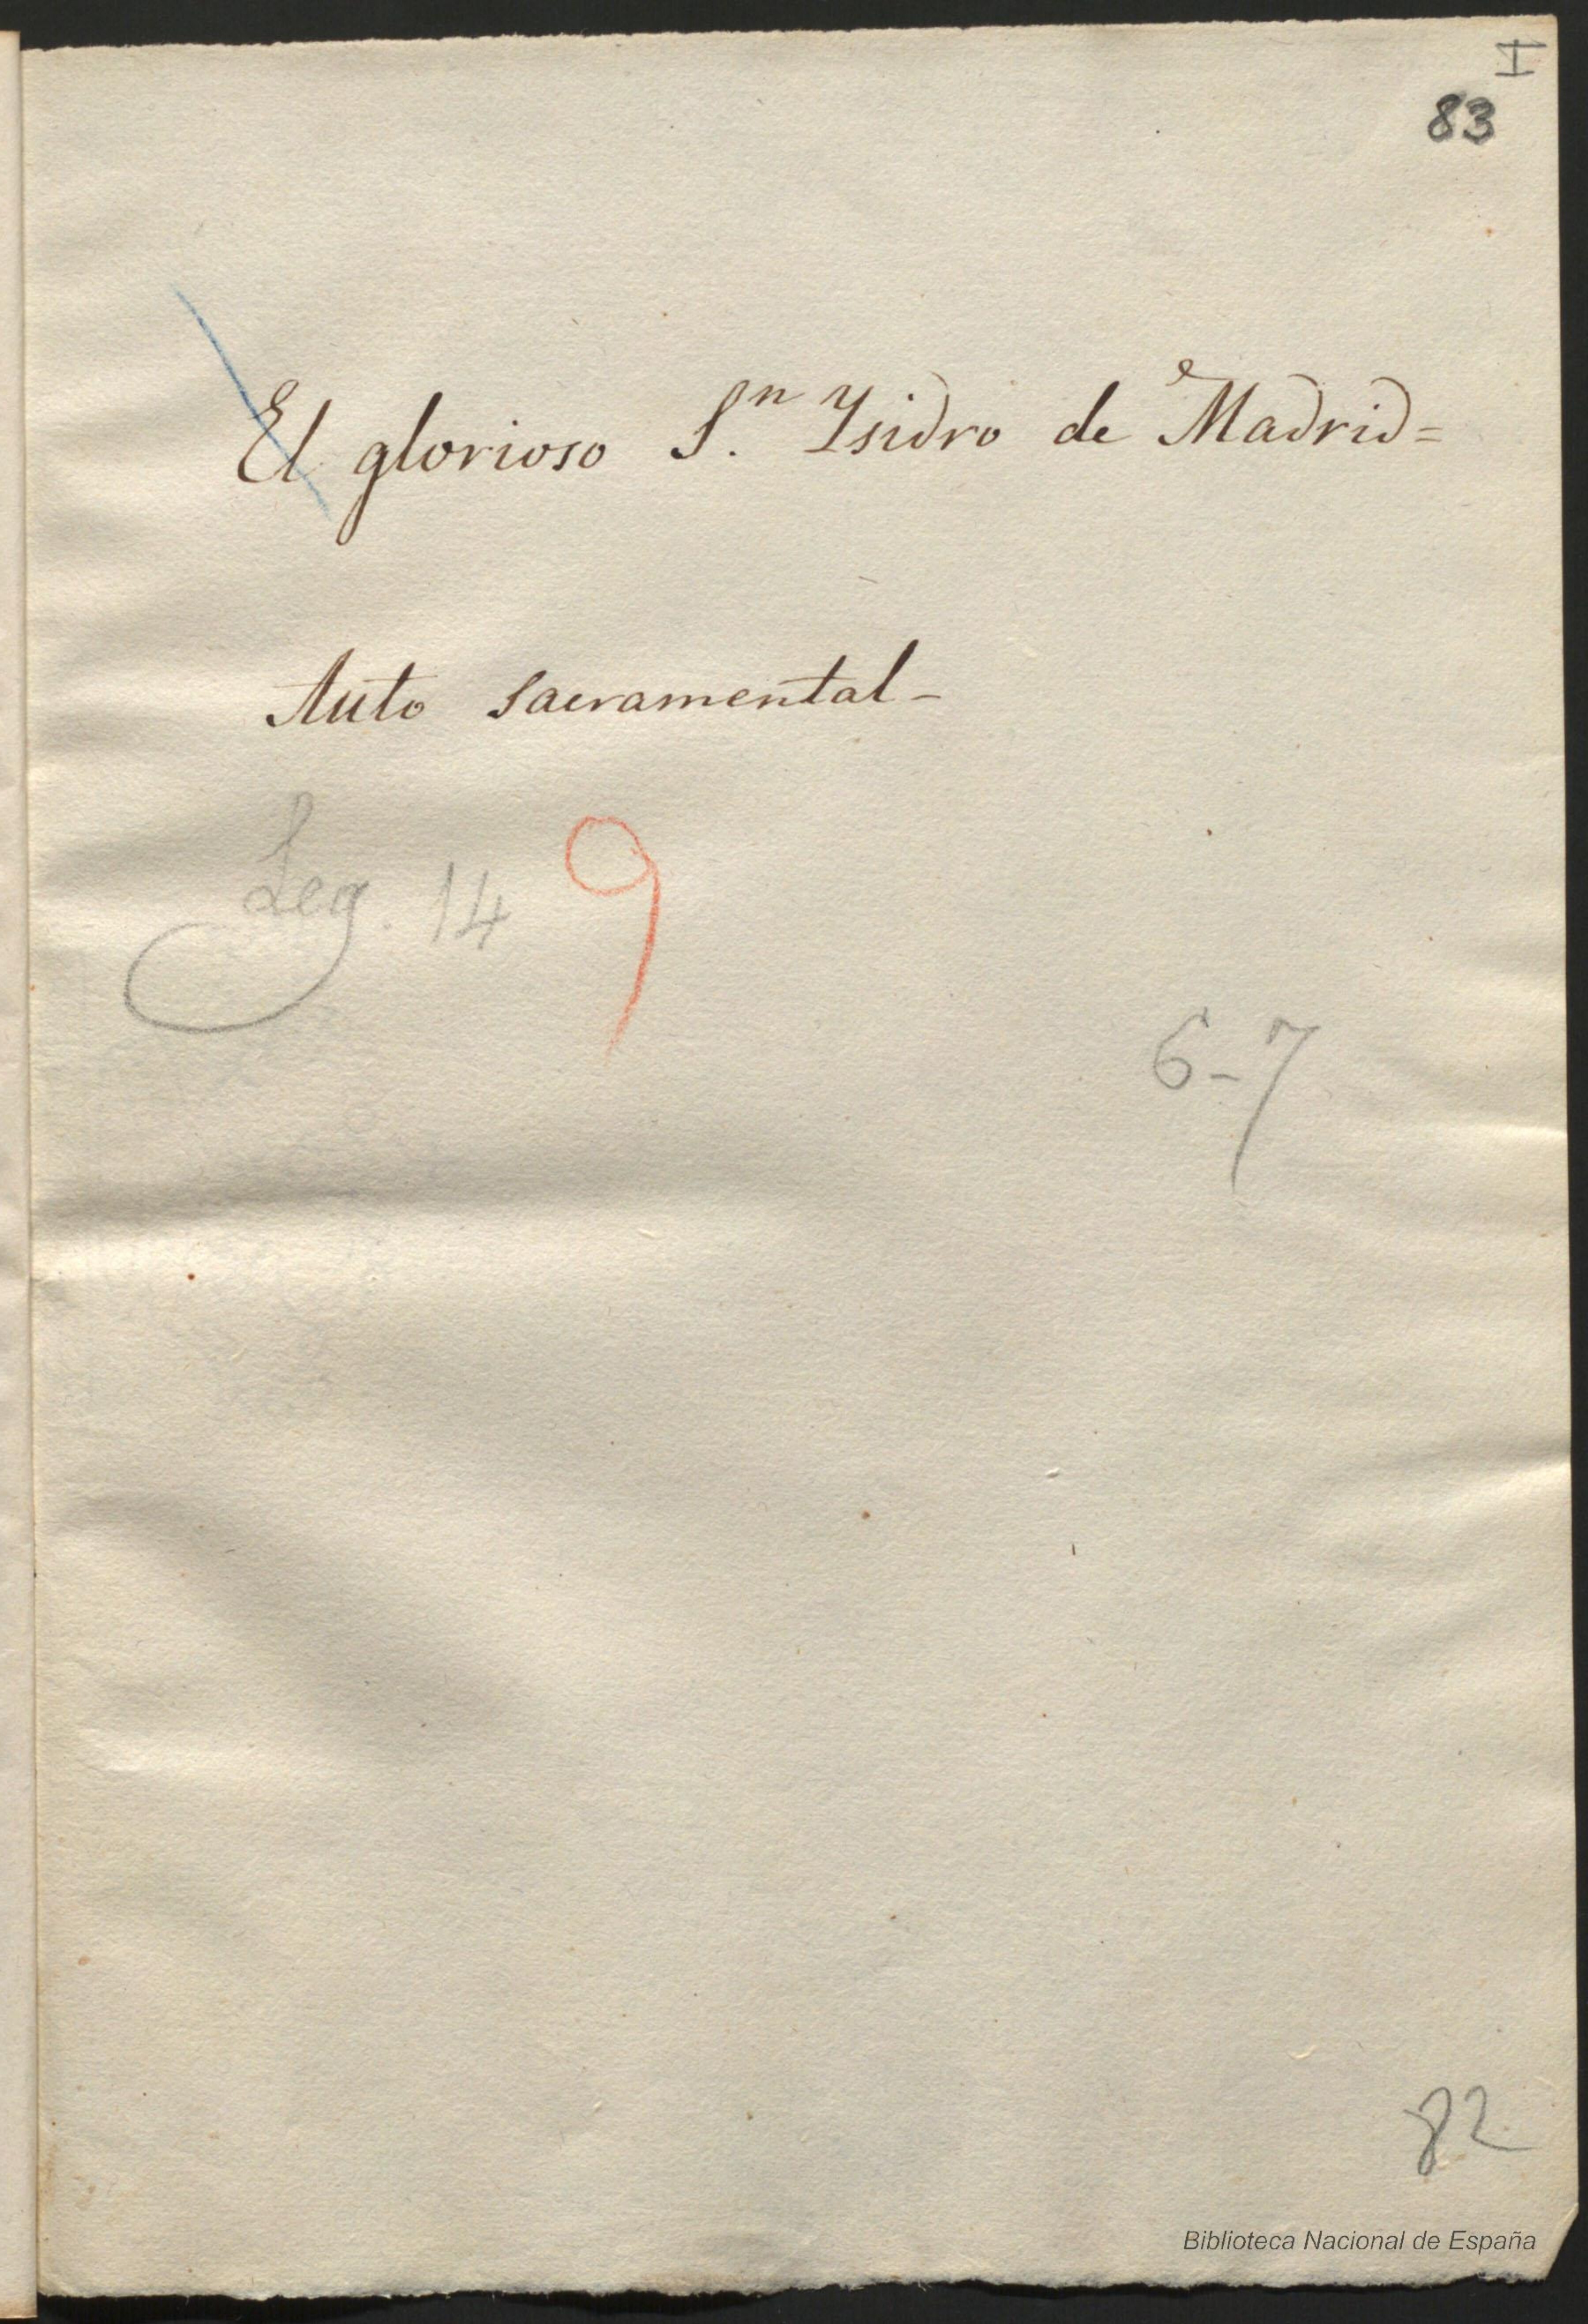 I
83
El glorioso S.n Ysidro de Madrid=
Auto sacramental-
Leg. 14 9
6-7
82
Biblioteca Nacional de España